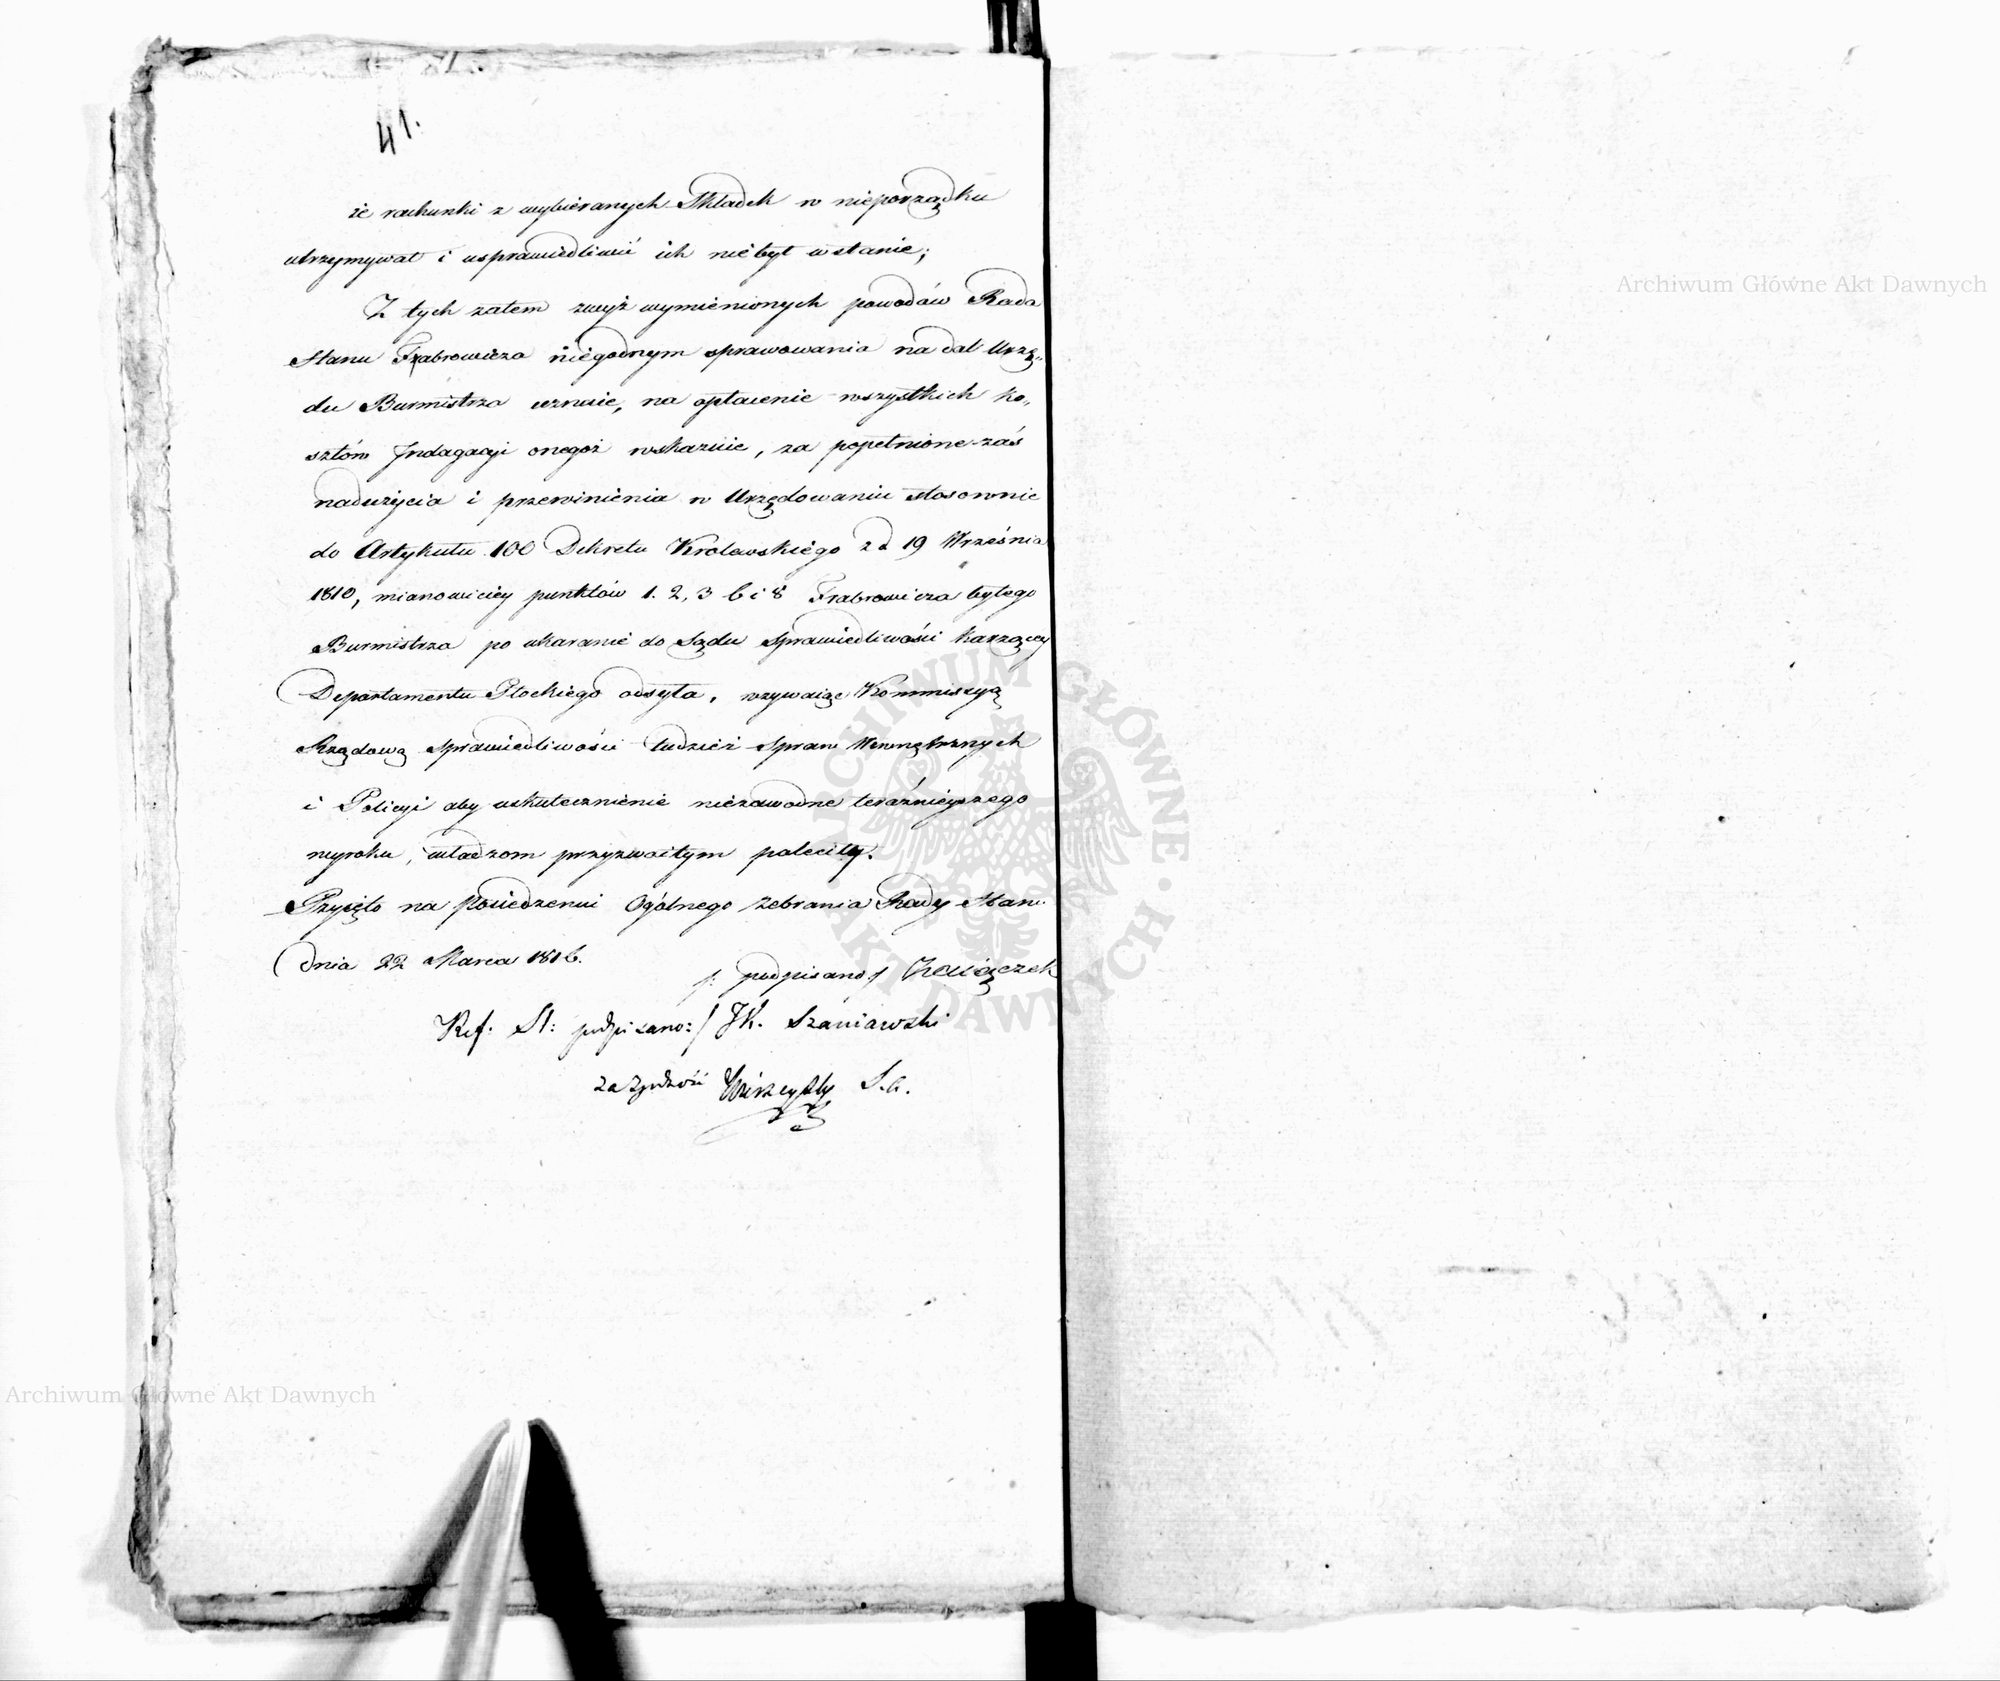 41.
że rachunki z wybieranych Składek w nieporządku
utrzymywał i usprawiedliwić ich niebył wstanie;
Z tych zatem zwyż wymienionych powodów Rada
Stanu Frabrowicza niegodnym sprawowania na dal Urzę„
du Burmistrza uznaie, na opłacenie wszystkich ko„
sztów Indagacyi onegoż wskazuie, za popełnione zaś
nadużycia i przewinienia w Urzędowaniu stosownie
do Artykułu 100 Dekretu Krolewskiego z d 19 Września
1810, mianowiciey punktów 1. 2, 3 6 i 8 Frabrowicza byłego
Burmistrza po ukaranie do Sądu Sprawiedliwości karzącey
Departamentu Płockiego odsyła, wzywaiąc Kommissyą
Rządową Sprawiedliwości tudzież Spraw Wewnętrznych
i Policyi aby uskutecznienie niezawodne teraźnieyszego
wyroku, władzom przyzwoitym poleciły.
Przyięto na Posiedzeniu Ogólnego Zebrania Rady Stanu
dnia 22 Marca 1816.
/: podpisano/ Zaiączek
Ref: St: podpisano:/ JK. Szaniawski
za zgodność S.
Archiwum Główne Akt Dawnych
Archiwum Główne Akt Dawnych
ARCHIWUM GŁÓWNE AKT DAWNYCH